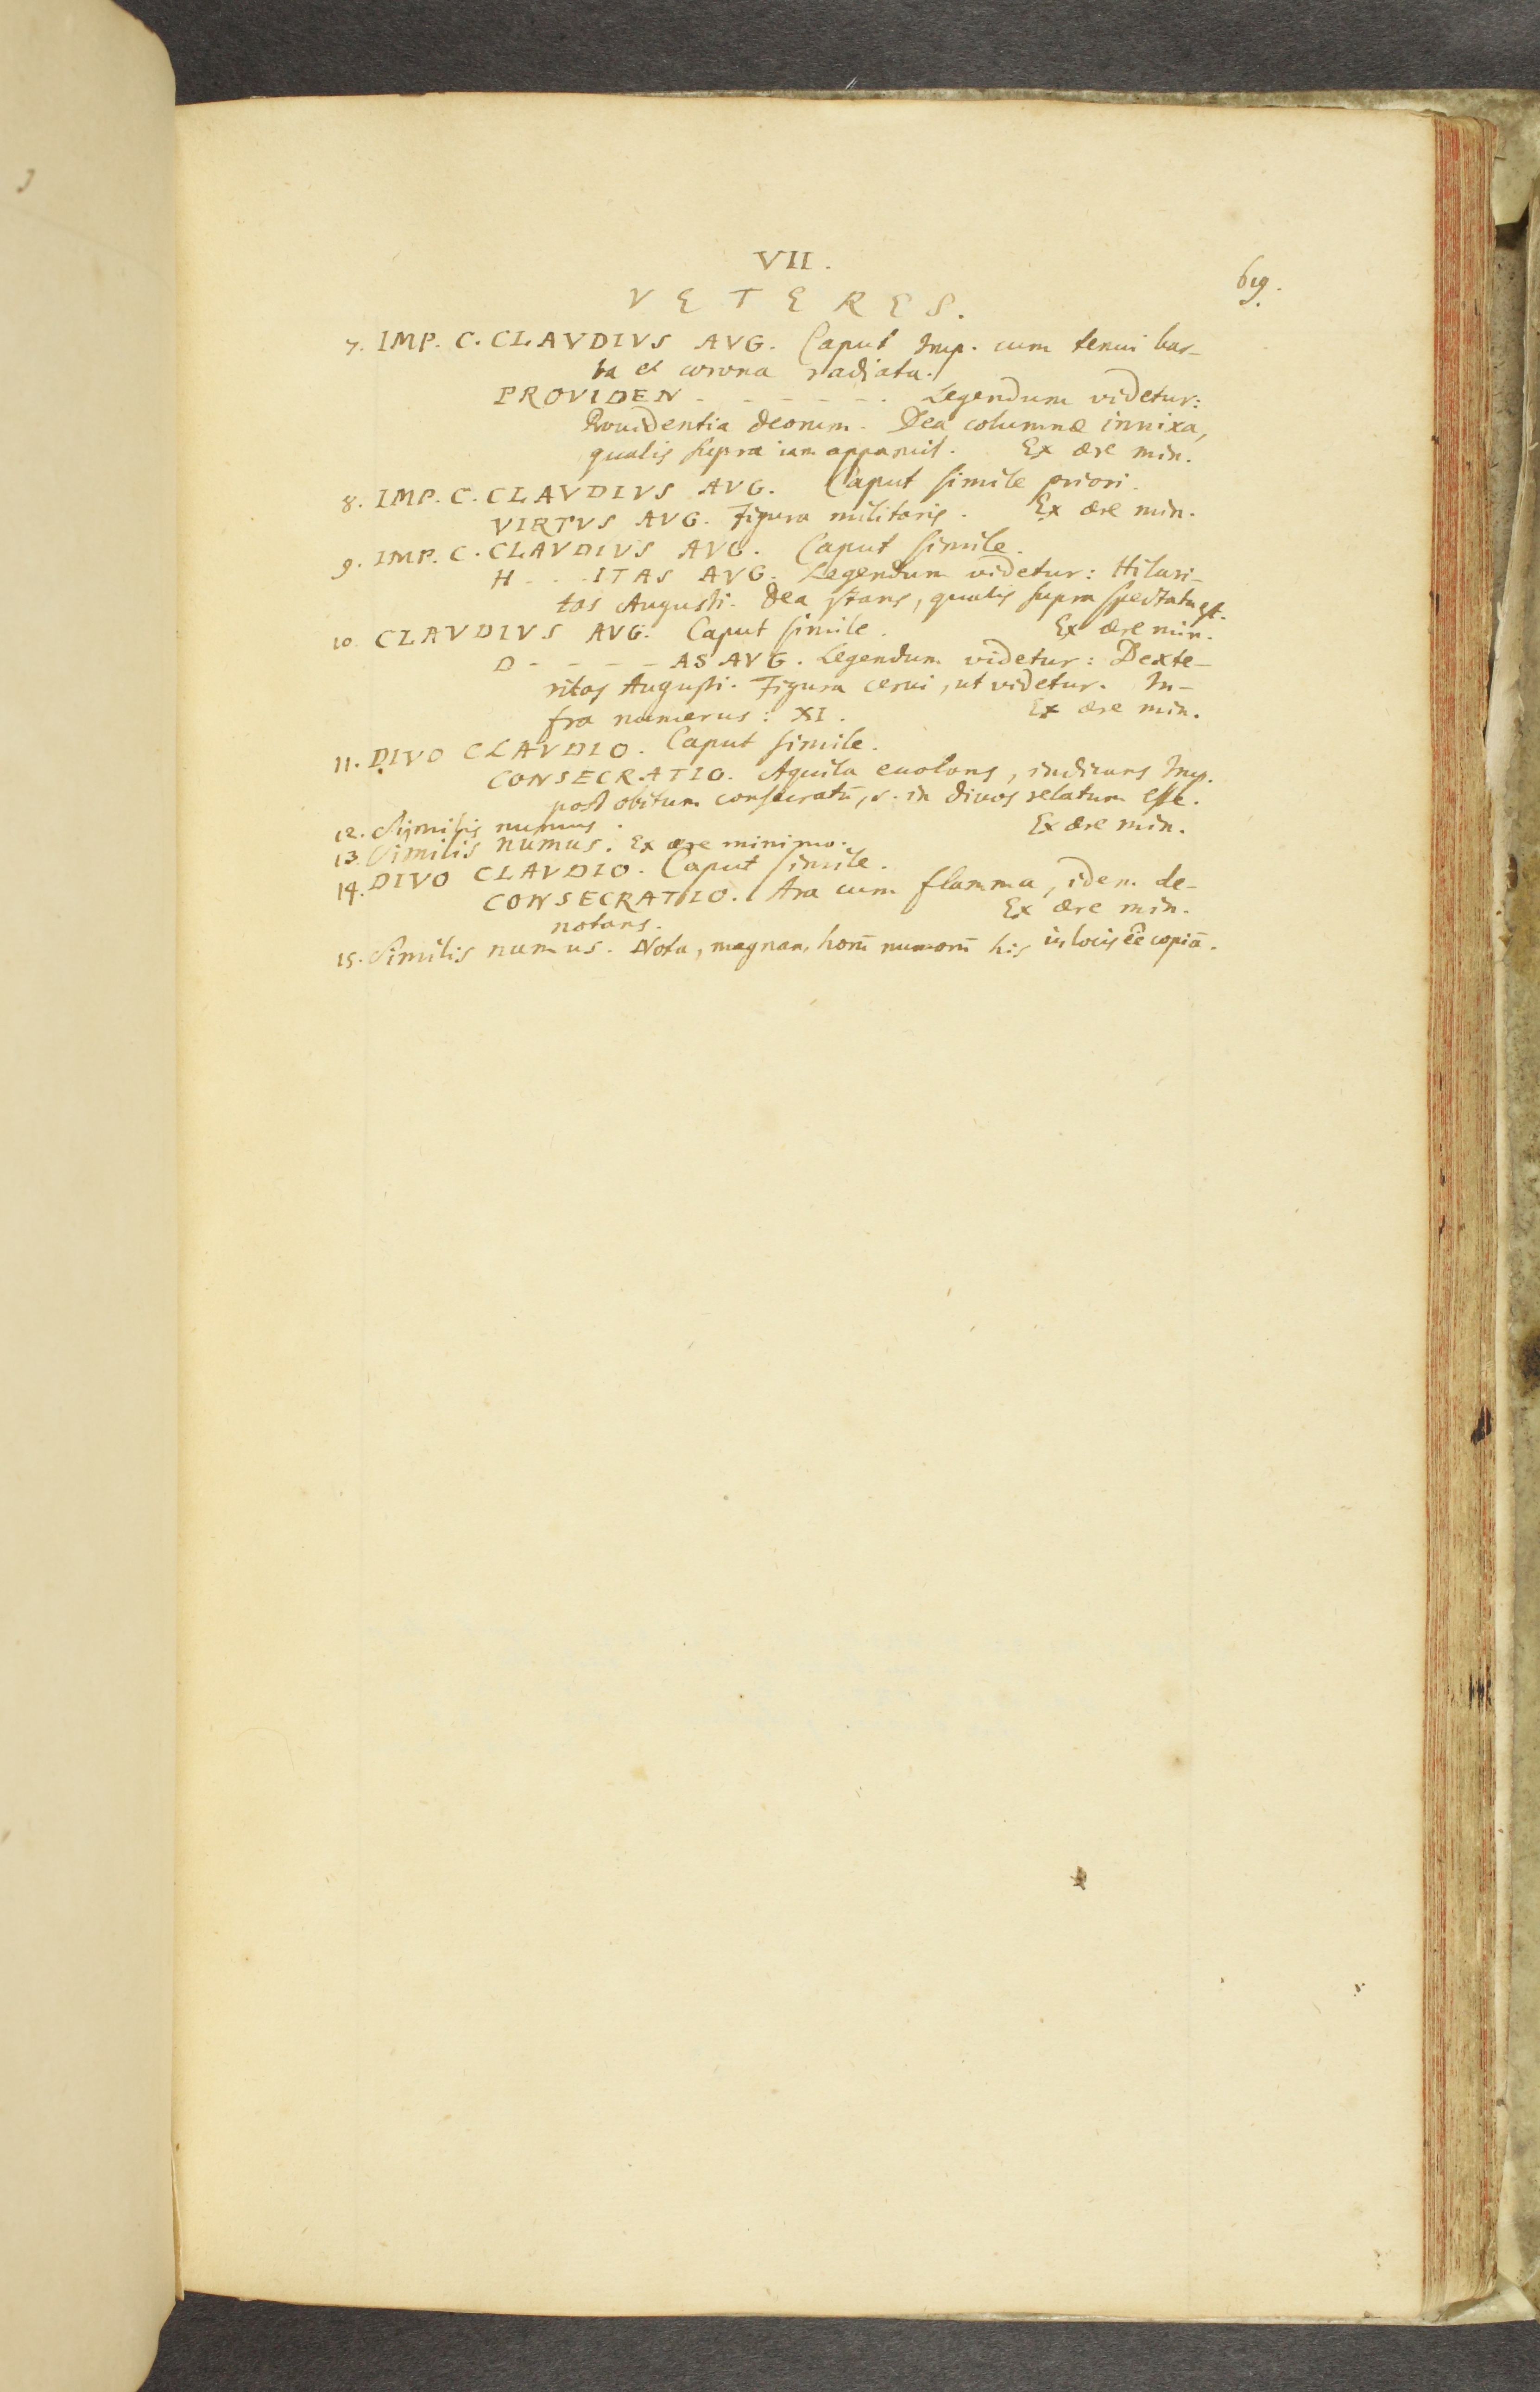 VII.
619.
VETERES.
7. IMP. C. CLAVDIVS AVG. Caput Imp. cum tenui bar-
ba et corona radiata.
PROVIDEN - - - - - -. Legendum videtur:
Prouidentia deorum. Dea columnæ innixa,
qualis supra iam apparuit. Ex ære min.
8. IMP. C. CLAVDIVS AVG. Caput simile priori.
VIRTVS AVG. Figura militaris. Ex ære min.
9. IMP. C. CLAVDIVS AVG. Caput simile.
H - - - ITAS AVG. Legendum videtur: Hilari-
tas Augusti. Dea stans, qualis supra spectata est.
Ex ære min.
10. CLAVDIVS AVG. Caput simile.
D - - - - AS AVG. Legendum videtur: Dexte-
ritas Augusti. Figura cerui, ut videtur. In-
fra numerus: XI. Ex ære min.
11. DIVO CLAVDIO. Caput simile.
CONSECRATIO. Aquila euolans, indicans Imp.
post obitum consecratū, s. in divos relatum esse.
Ex ære min.
12. Similis numus.
13. Similis numus. Ex ære minimo.
14. DIVO CLAVDIO. Caput simile.
CONSECRATIO. Ara cum flamma, idem de-
notans. Ex ære min.
15. Similis numus. Nota, magnam horū numorū his in locis ēē copiā.